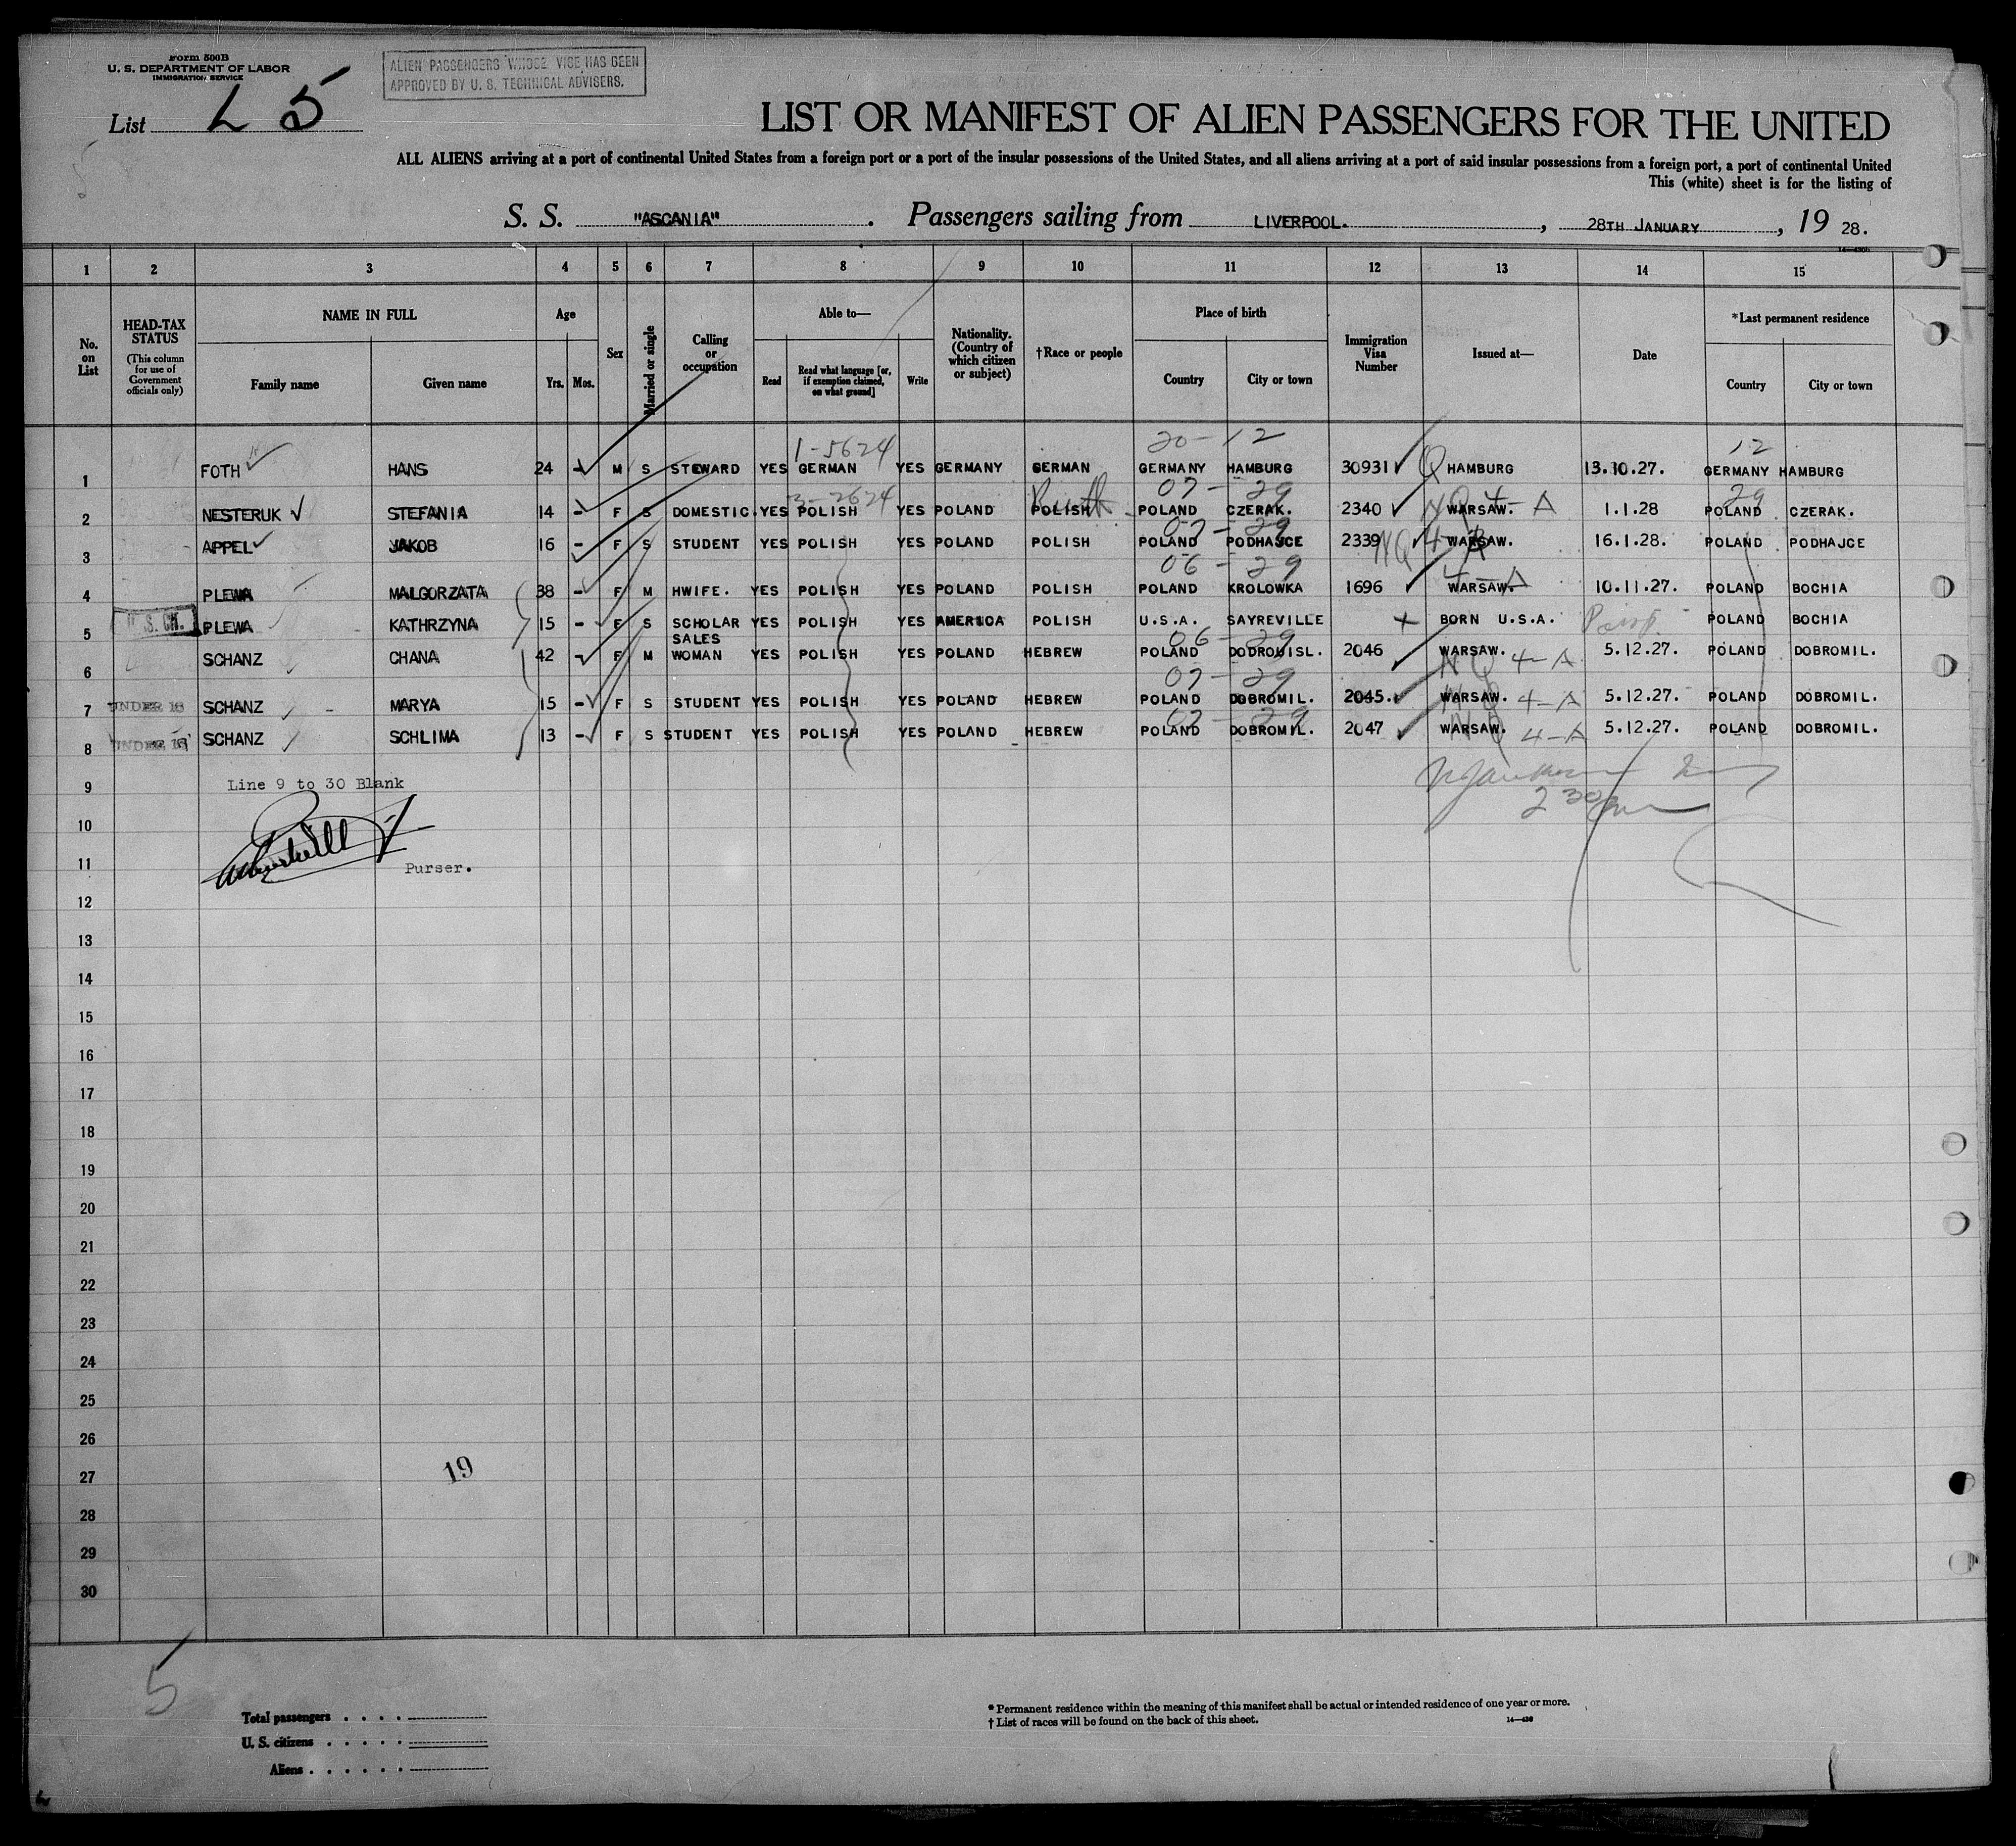 Form 500B
U. S. DEPARTMENT OF LABOR
IMMIGRATION SERVICE
ALIEN PASSENGERS WHOSE VISE HAS BEEN
APPROVED BY U. S. TECHNICAL ADVISERS.
List L 5
LIST OR MANIFEST OF ALIEN PASSENGERS FOR THE UNITED
ALL ALIENS arriving at a port of continental United States from a foreign port or a port of the insular possessions of the United States, and all aliens arriving at a port of said insular possessions from a foreign port, a port of continental United
This (white) sheet is for the listing of
S. S. "ASCANIA". Passengers sailing from LIVERPOOL., 28TH JANUARY, 19 28.
1 2 3 4 5 6 7 8 9 10 11 12 13 14 15
No. on List
HEAD-TAX STATUS (This column for use of Government officials only)
NAME IN FULL Family name Given name
Age Yrs. Mos.
Sex
Married or single
Calling or occupation
Able to— Read Read what language [or, if exemption claimed, on what ground] Write
Nationality. (Country of which citizen or subject)
†Race or people
Place of birth Country City or town
Immigration Visa Number
Issued at—
Date
*Last permanent residence Country City or town
1-5624 20-12 12
1 FOTH HANS 24 - M S STEWARD YES GERMAN YES GERMANY GERMAN GERMANY HAMBURG 30931 Q HAMBURG 13.10.27. GERMANY HAMBURG
3-2624 Ruth 07-29 29
2 NESTERUK STEFANIA 14 - F S DOMESTIC. YES POLISH YES POLAND POLISH POLAND CZERAK. 2340 NQ WARSAW. 4-A 1.1.28 POLAND CZERAK.
07-29
3 APPEL JAKOB 16 - F S STUDENT YES POLISH YES POLAND POLISH POLAND PODHAJCE 2339 NQ WARSAW. 16.1.28. POLAND PODHAJCE
06-29 4-A
4 PLEWA MALGORZATA 38 - F M HWIFE. YES POLISH YES POLAND POLISH POLAND KROLOWKA 1696 WARSAW. 10.11.27. POLAND BOCHIA
5 U. S. CH. PLEWA KATHRZYNA 15 - F S SCHOLAR YES POLISH YES AMERICA POLISH U.S.A. SAYREVILLE BORN U.S.A. POLAND BOCHIA
06-29
6 SCHANZ CHANA 42 - F M SALES WOMAN YES POLISH YES POLAND HEBREW POLAND DODROUISL. 2046 WARSAW. NQ 4-A 5.12.27. POLAND DOBROMIL.
07-29
7 UNDER 16 SCHANZ MARYA 15 - F S STUDENT YES POLISH YES POLAND HEBREW POLAND DOBROMIL. 2045. WARSAW. NQ 4-A 5.12.27. POLAND DOBROMIL.
07-29
8 UNDER 16 SCHANZ SCHLIMA 13 - F S STUDENT YES POLISH YES POLAND HEBREW POLAND DOBROMIL. 2047 WARSAW. NQ 4-A 5.12.27. POLAND DOBROMIL.
9 Line 9 to 30 Blank
2 30 pm
10
11 Purser.
12
13
14
15
16
17
18
19
20
21
22
23
24
25
26
27 19
28
29
30
5
Total passengers . . . .
U. S. citizens . . . . .
Aliens . . . . . .
* Permanent residence within the meaning of this manifest shall be actual or intended residence of one year or more.
† List of races will be found on the back of this sheet.
14—430